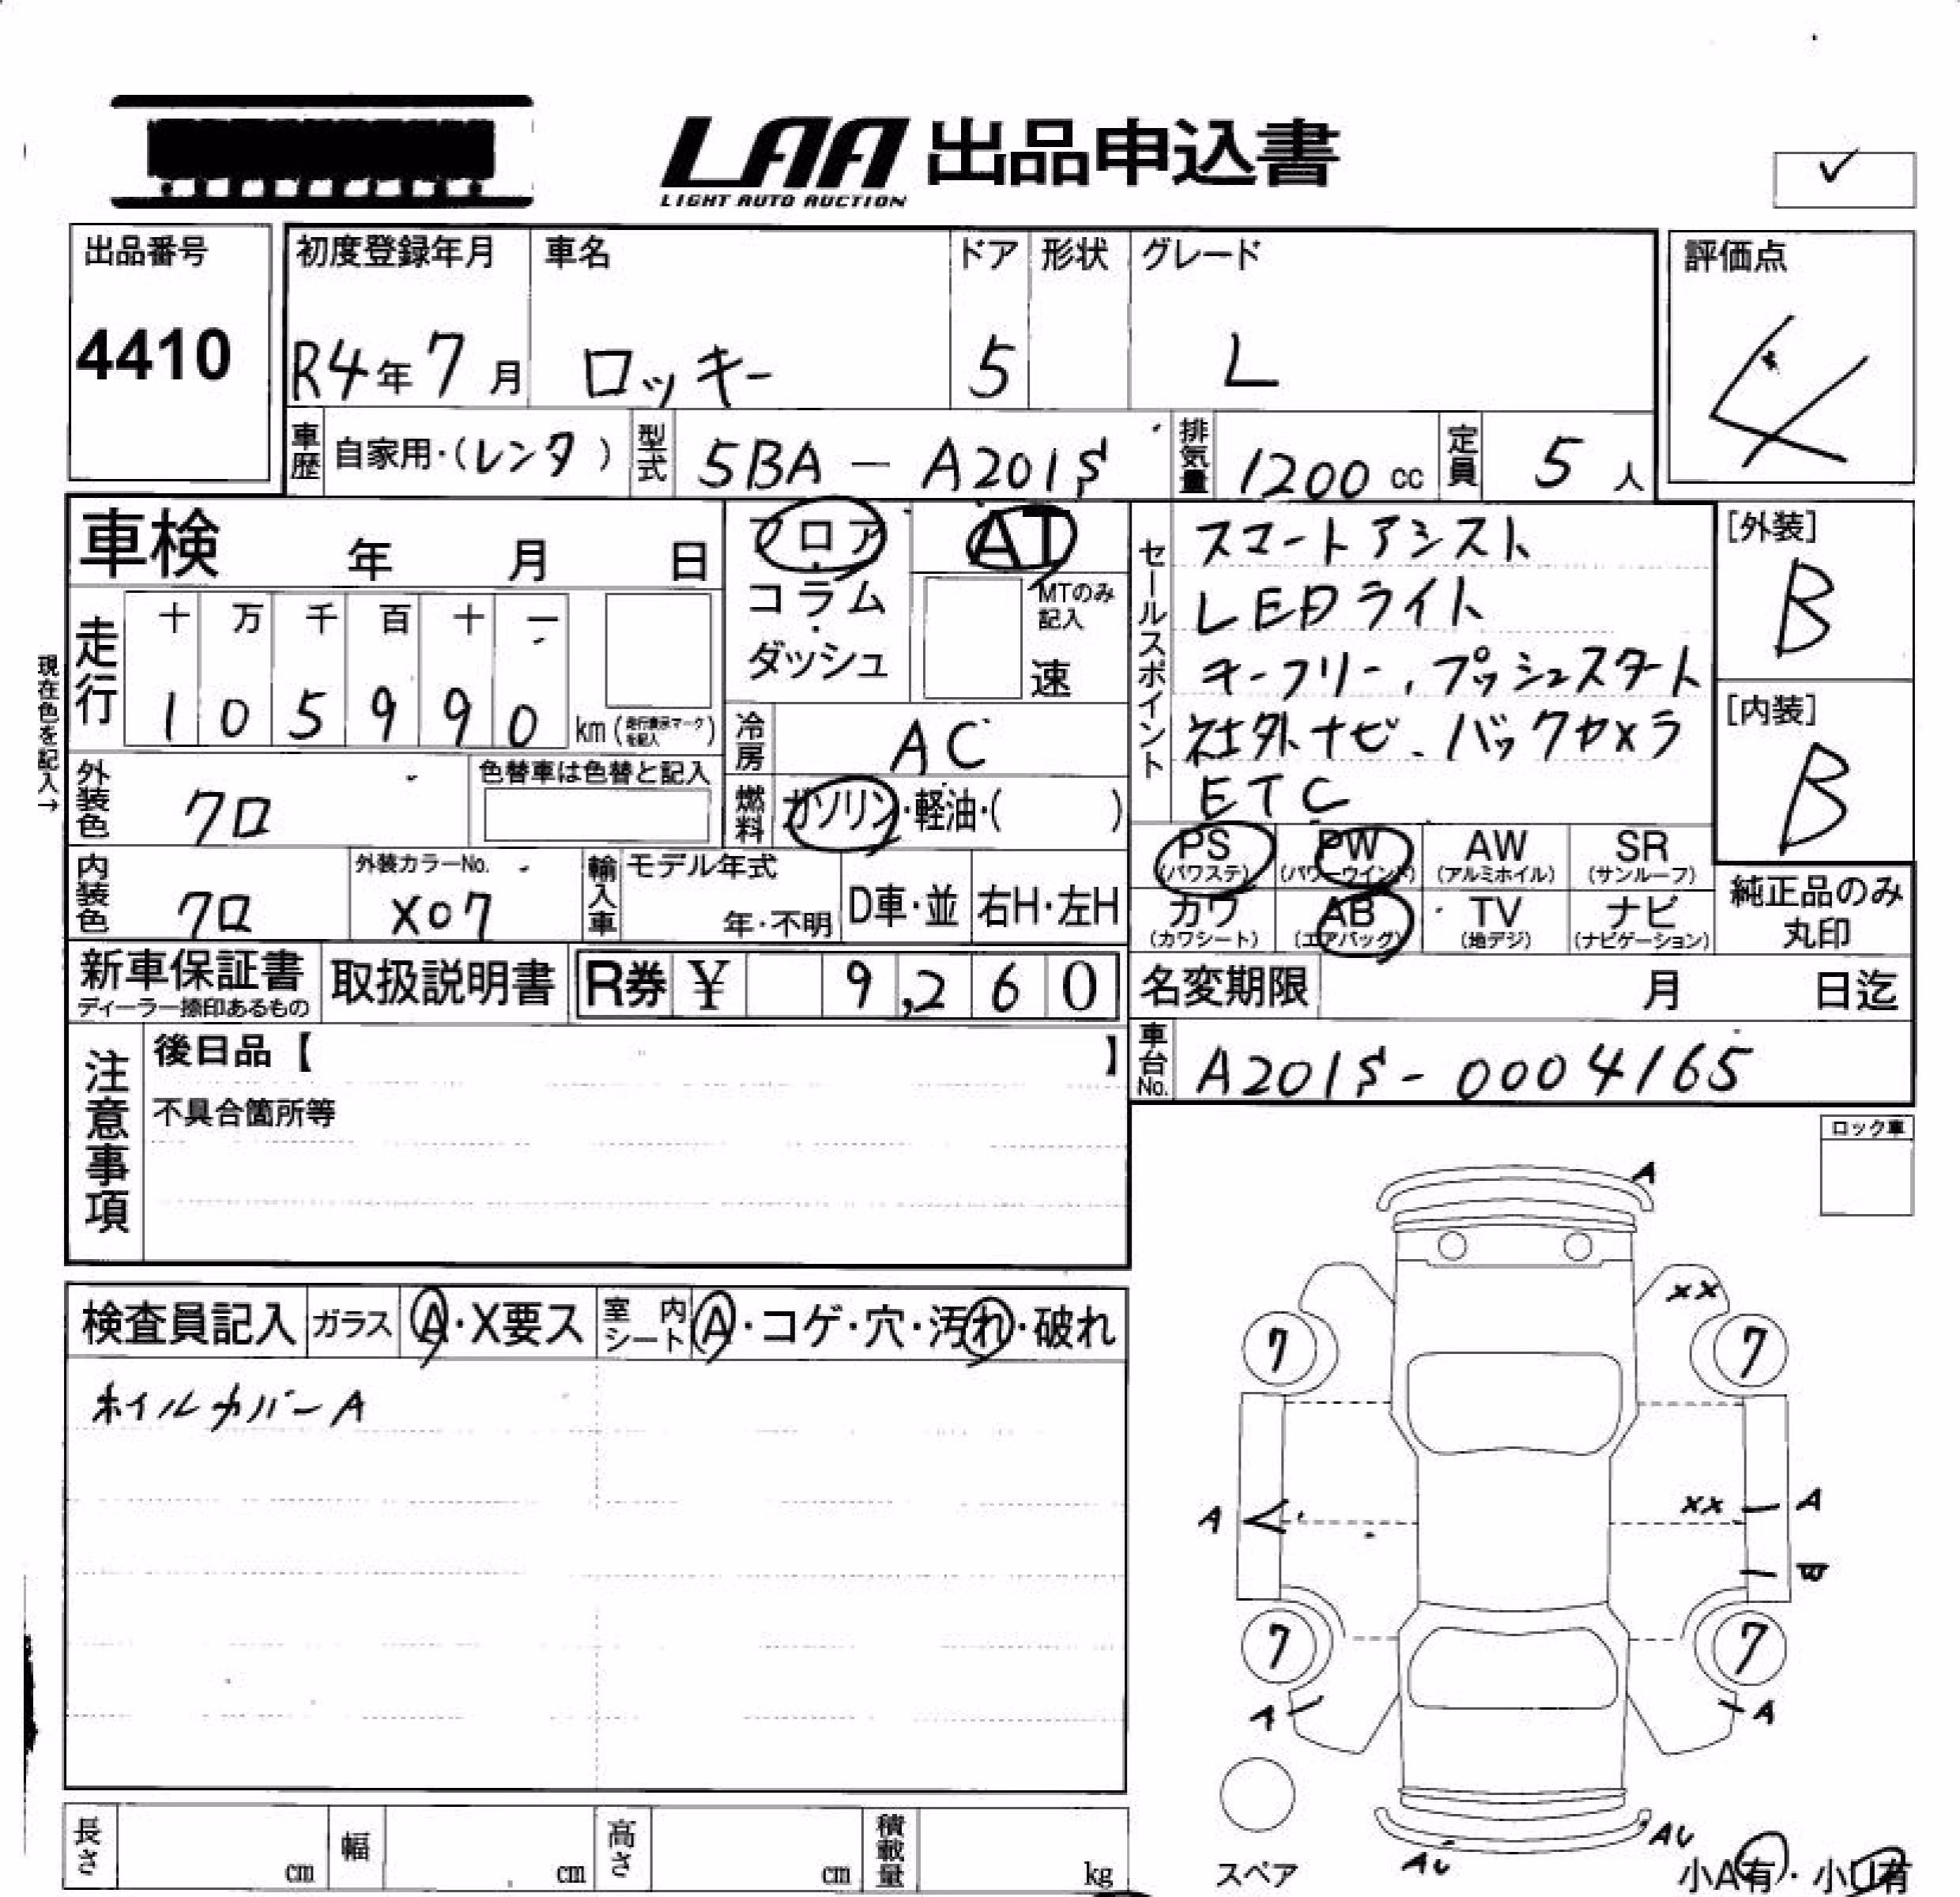 LAA 出品申込書
LIGHT AUTO AUCTION
✓
出品番号
4410
初度登録年月
R4年7月
車名
ロッキー
ドア
5
形状
グレード
L
評価点
4
車歴 自家用・(レンタ)
型式 5BA - A201S
排気量 1200cc
定員 5人
車検 年 月 日
フロア・コラム・ダッシュ
AT
MTのみ記入
速
セールスポイント
スマートアシスト
LEDライト
キーフリー、プッシュスタート
社外ナビ、バックカメラ
ETC
[外装]
B
[内装]
B
現在色を記入→
走行
十 万 千 百 十 一
1 0 5 9 9 0 km (走行表示マークを記入)
冷房 AC
外装色 クロ
色替車は色替と記入
燃料 ガソリン・軽油・( )
PS (パワステ)
PW (パワーウインド)
AW (アルミホイル)
SR (サンルーフ)
内装色 クロ
外装カラーNo. X07
輸入車 モデル年式
年・不明
D車・並
右H・左H
カワ (カワシート)
AB (エアバッグ)
TV (地デジ)
ナビ (ナビゲーション)
純正品のみ丸印
新車保証書
ディーラー捺印あるもの
取扱説明書
R券 ¥ 9,260
名変期限 月 日迄
注意事項
後日品【 】
不具合箇所等
車台No. A201S-0004165
ロック車
検査員記入
ガラス A・X要ス
室内シート A・コゲ・穴・汚れ・破れ
ホイルカバーA
A
XX
7 7
XX A
A
W
7 7
A A
AU
AU
スペア
小A有・小U有
長さ cm
幅 cm
高さ cm
積載量 kg